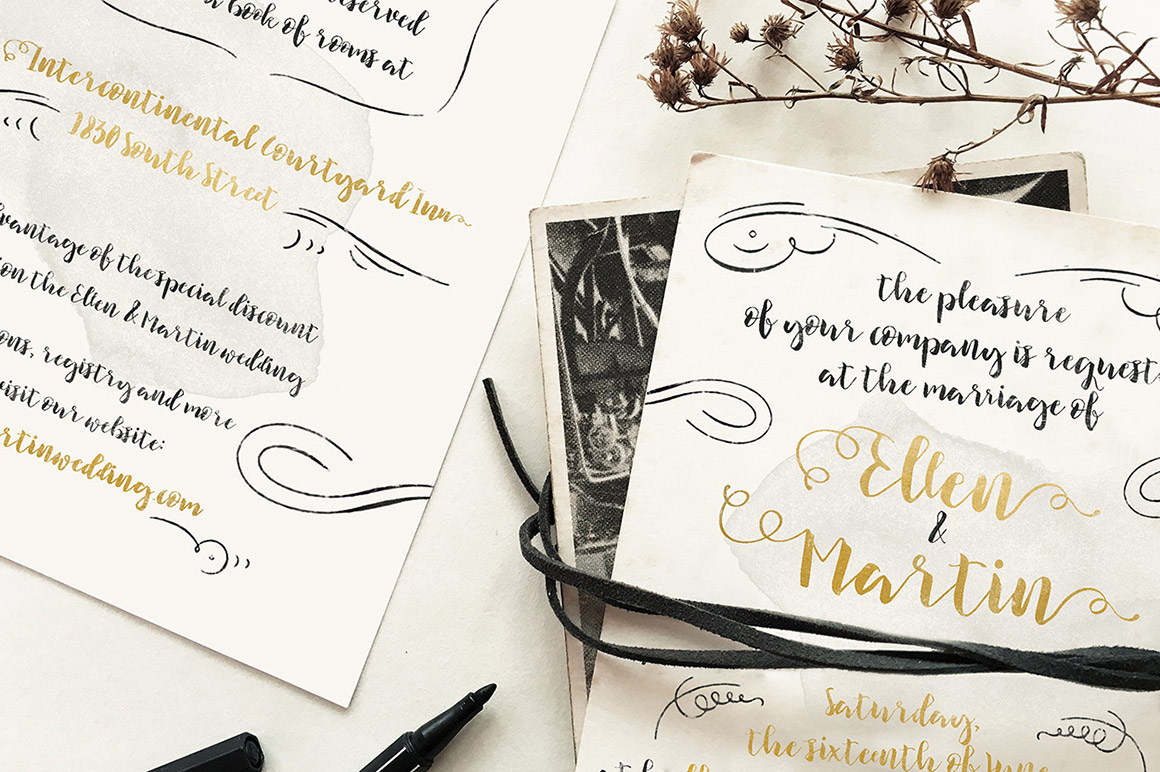 reserved
book of rooms at
Intercontinental Courtyard Inn
1830 South Street
of the special discount
on the Ellen & Martin wedding
registry and more
visit our website:
rtinwedding.com
the pleasure
of your company is request
at the marriage of
Ellen
&
Martin
Saturday,
the sixteenth of June